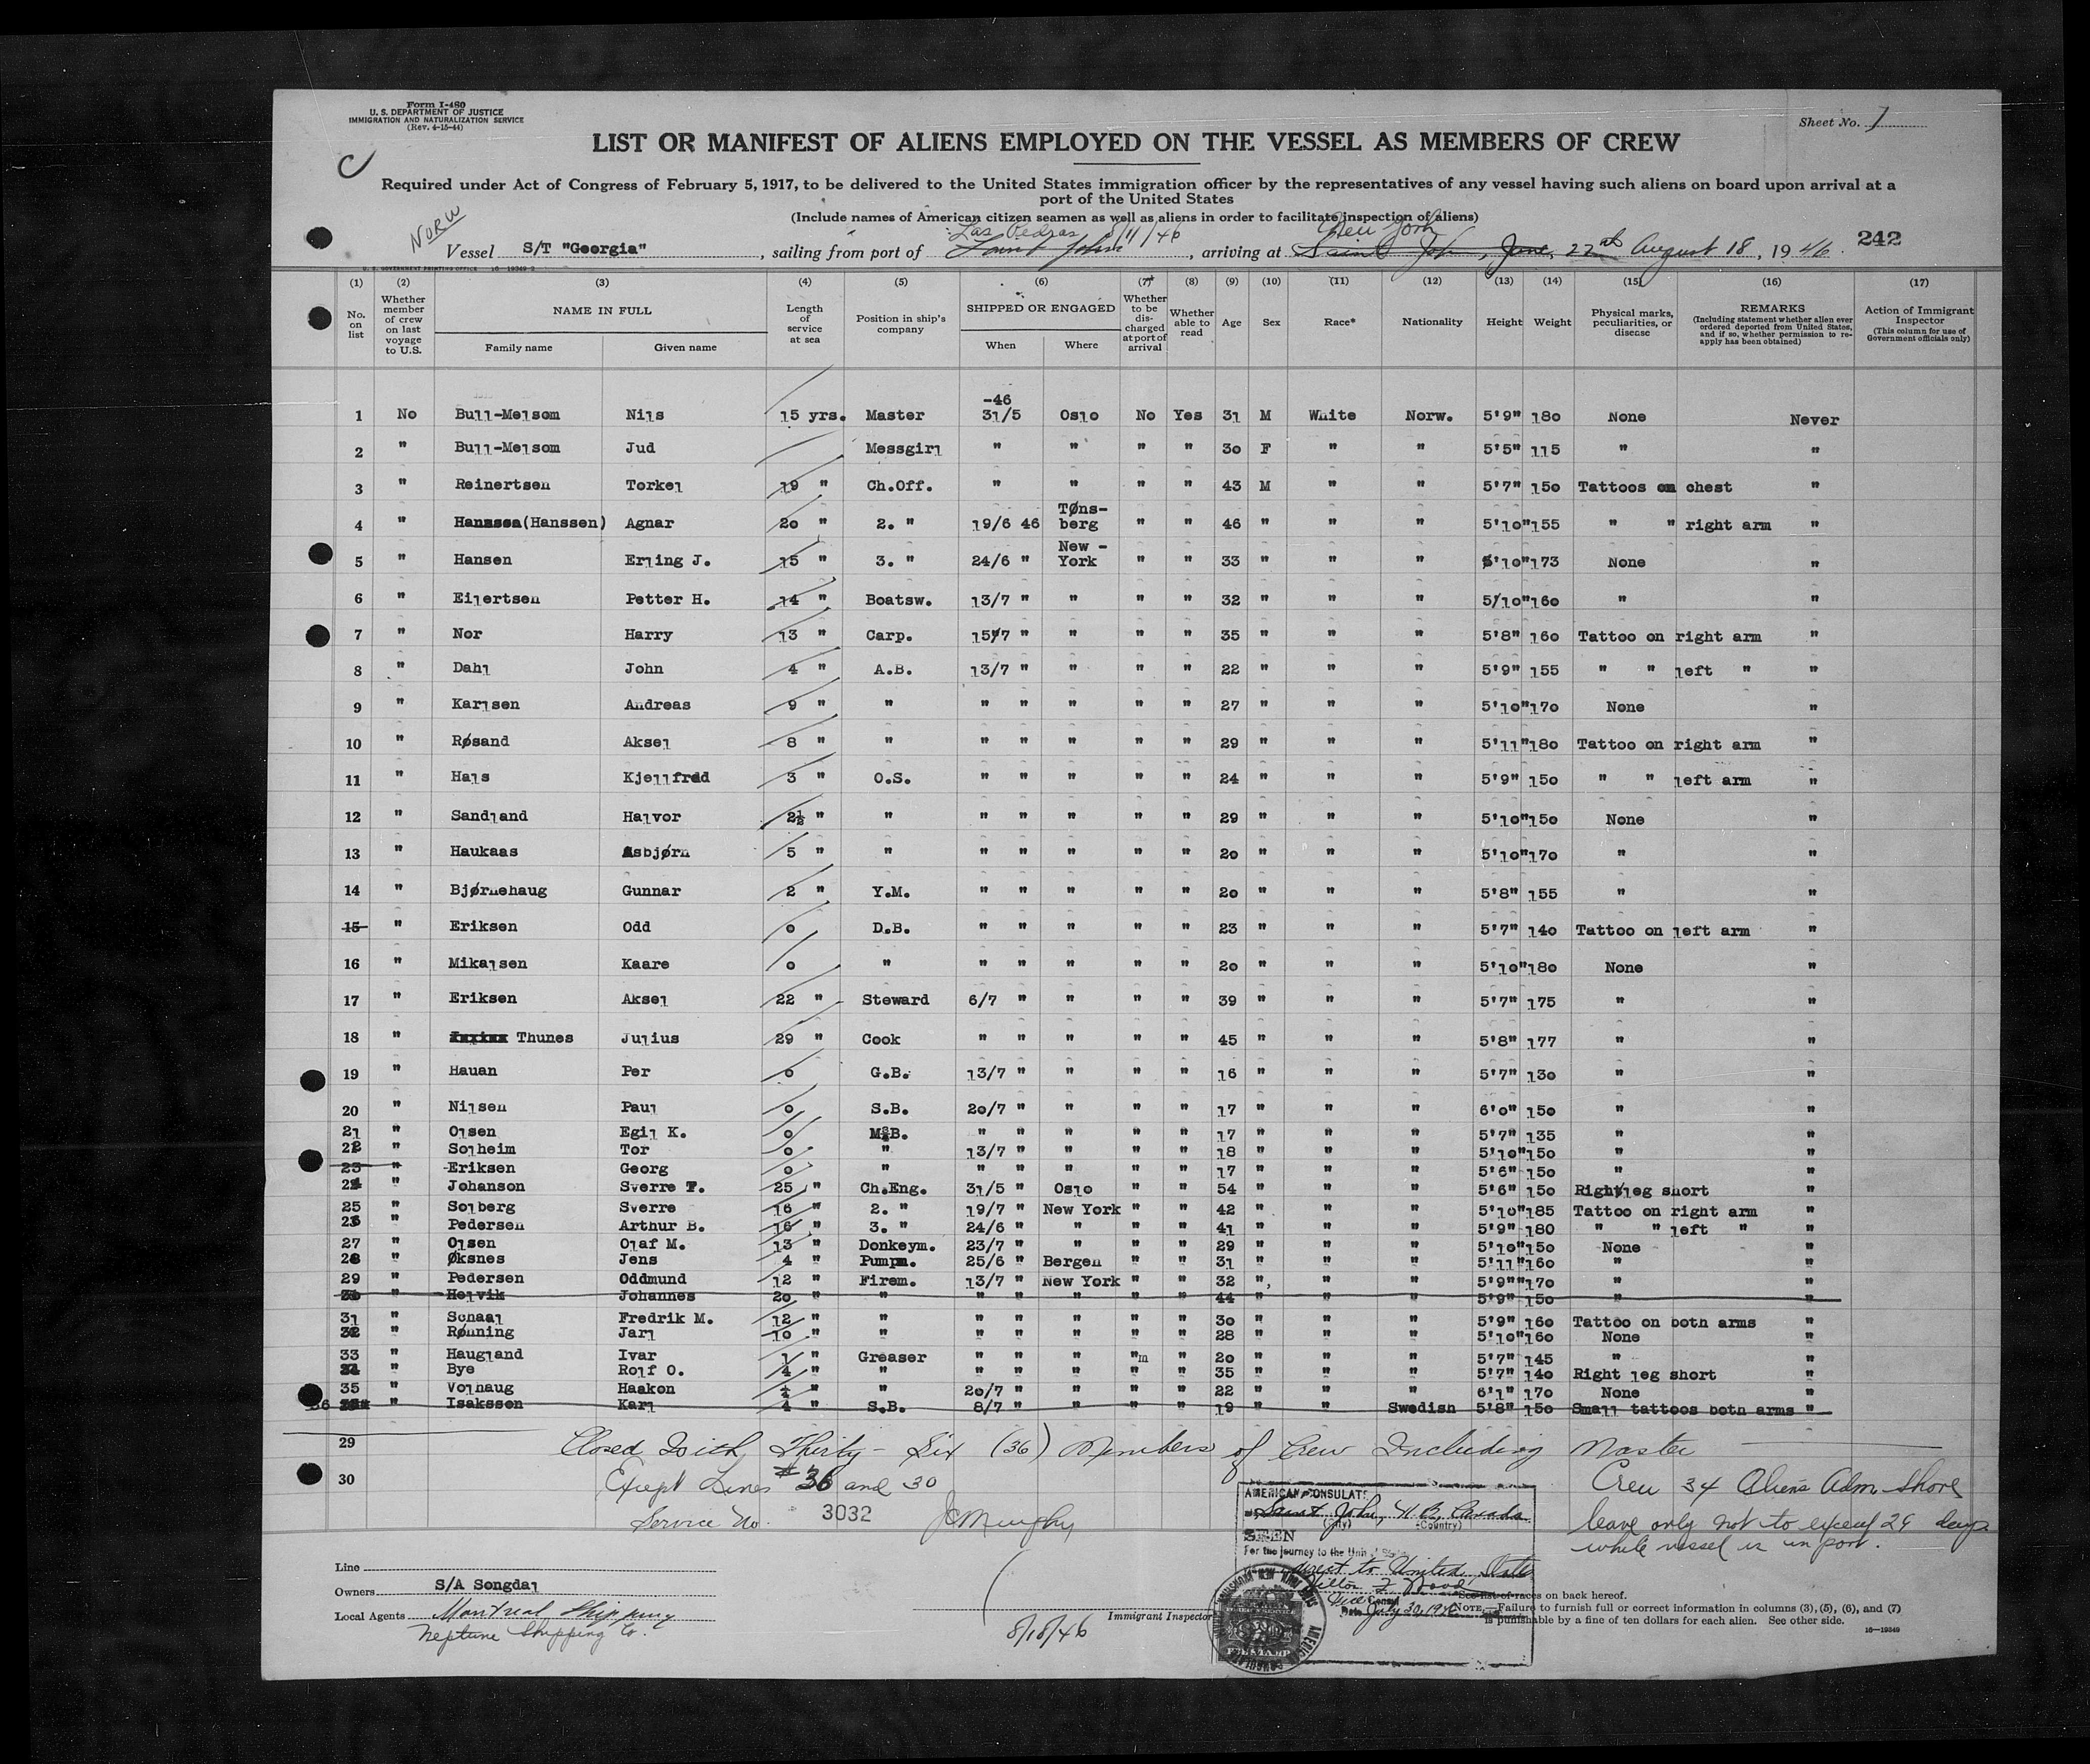 Form I-480
U. S. DEPARTMENT OF JUSTICE
IMMIGRATION AND NATURALIZATION SERVICE
(Rev. 4-15-44)
Sheet No. 1
C
LIST OR MANIFEST OF ALIENS EMPLOYED ON THE VESSEL AS MEMBERS OF CREW
Required under Act of Congress of February 5, 1917, to be delivered to the United States immigration officer by the representatives of any vessel having such aliens on board upon arrival at a
port of the United States
(Include names of American citizen seamen as well as aliens in order to facilitate inspection of aliens)
NORW
Las Pedras 8/11/46 New York
Vessel S/T "Georgia", sailing from port of Saint John, arriving at Saint John, June 22nd August 18, 1946. 242
U. S. GOVERNMENT PRINTING OFFICE 16-19349-2
(1) (2) (3) (4) (5) (6) (7) (8) (9) (10) (11) (12) (13) (14) (15) (16) (17)
No. on list
Whether member of crew on last voyage to U.S.
NAME IN FULL
Family name
Given name
Length of service at sea
Position in ship's company
SHIPPED OR ENGAGED
When
Where
Whether to be discharged at port of arrival
Whether able to read
Age
Sex
Race*
Nationality
Height
Weight
Physical marks, peculiarities, or disease
REMARKS
(Including statement whether alien ever ordered deported from United States, and if so, whether permission to re-apply has been obtained)
Action of Immigrant Inspector
(This column for use of Government officials only)
1 No Bull-Melsom Nils 15 yrs. Master -46 31/5 Oslo No Yes 31 M White Norw. 5'9" 180 None Never
2 " Bull-Melsom Jud Messgirl " " " " 30 F " " 5'5" 115 " "
3 " Reinertsen Torkel 19 " Ch.Off. " " " " 43 M " " 5'7" 150 Tattoos on chest "
4 " (Hanssen) Agnar 20 " 2. " 19/6 46 Tøns-berg " " 46 " " " 5'10" 155 " " right arm "
5 " Hansen Erling J. 15 " 3. " 24/6 " New - York " " 33 " " " 5'10" 173 None "
6 " Eilertsen Petter H. 14 " Boatsw. 13/7 " " " " 32 " " " 5/10" 160 " "
7 " Nor Harry 13 " Carp. 15/7 " " " " 35 " " " 5'8" 160 Tattoo on right arm "
8 " Dahl John 4 " A.B. 13/7 " " " " 22 " " " 5'9" 155 " " left " "
9 " Karlsen Andreas 9 " " " " " " " 27 " " " 5'10" 170 None "
10 " Røsand Aksel 8 " " " " " " " 29 " " " 5'11" 180 Tattoo on right arm "
11 " Hals Kjellfred 3 " O.S. " " " " " 24 " " " 5'9" 150 " " left arm "
12 " Sandland Halvor 2½ " " " " " " " 29 " " " 5'10" 150 None "
13 " Haukaas Asbjørn 5 " " " " " " " 20 " " " 5'10" 170 " "
14 " Bjørnehaug Gunnar 2 " Y.M. " " " " " 20 " " " 5'8" 155 " "
15 " Eriksen Odd 0 D.B. " " " " " 23 " " " 5'7" 140 Tattoo on left arm "
16 " Mikalsen Kaare 0 " " " " " " 20 " " " 5'10" 180 None "
17 " Eriksen Aksel 22 " Steward 6/7 " " " " 39 " " " 5'7" 175 " "
18 " Thunes Julius 29 " Cook " " " " " 45 " " " 5'8" 177 " "
19 " Hauan Per 0 G.B. 13/7 " " " " 16 " " " 5'7" 130 " "
20 " Nilsen Paul 0 S.B. 20/7 " " " " 17 " " " 6'0" 150 " "
21 " Olsen Egil K. 0 M.B. " " " " " 17 " " " 5'7" 135 " "
22 " Solheim Tor 0 " 13/7 " " " " 18 " " " 5'10" 150 " "
23 " Eriksen Georg 0 " " " " " " 17 " " " 5'6" 150 " "
24 " Johanson Sverre T. 25 " Ch.Eng. 31/5 " Oslo " " 54 " " " 5'6" 150 Right leg short "
25 " Solberg Sverre 16 " 2. " 19/7 " New York " " 42 " " " 5'10" 185 Tattoo on right arm "
26 " Pedersen Arthur B. 16 " 3. " 24/6 " " " " 41 " " " 5'9" 180 " " left " "
27 " Olsen Olaf M. 13 " Donkeym. 23/7 " " " " 29 " " " 5'10" 150 None "
28 " Øksnes Jens 4 " Pumpm. 25/6 " Bergen " " 31 " " " 5'11" 160 " "
29 " Pedersen Oddmund 12 " Firem. 13/7 " New York " " 32 " " " 5'9" 170 " "
30 " Helvik Johannes 20 " " " " " " " 44 " " " 5'9" 150 " "
31 " Schaal Fredrik M. 12 " " " " " " " 30 " " " 5'9" 160 Tattoo on both arms "
32 " Rønning Jarl 10 " " " " " " " 28 " " " 5'10" 160 None "
33 " Haugland Ivar 1 " Greaser " " " " " 20 " " " 5'7" 145 " "
34 " Bye Rolf O. 4 " " " " " " " 35 " " " 5'7" 140 Right leg short "
35 " Volhaug Haakon " " 20/7 " " " " 22 " " " 6'1" 170 None "
36 " Isaksson Karl 4 " S.B. 8/7 " " " " 19 " " Swedish 5'8" 150 Small tattoos both arms "
29 Closed With Thirty-Six (36) Members of Crew Including Master
30 Exept Lines #36 and 30
Service No. 3032 JC Murphy
Crew 34 Aliens Adm. Shore
leave only not to exceed 29 days
while vessel is in port.
AMERICAN CONSULATE
Saint John, N.B. Canada
(City) (Country)
SEEN
For the journey to the United States
direct to United States
Vice Consul
Date July 30, 1946
Line
Owners S/A Songdal
Local Agents Montreal Shipping
Neptune Shipping Co.
8/18/46
Immigrant Inspector
*See list of races on back hereof.
NOTE.—Failure to furnish full or correct information in columns (3), (5), (6), and (7)
is punishable by a fine of ten dollars for each alien. See other side.
16-19349